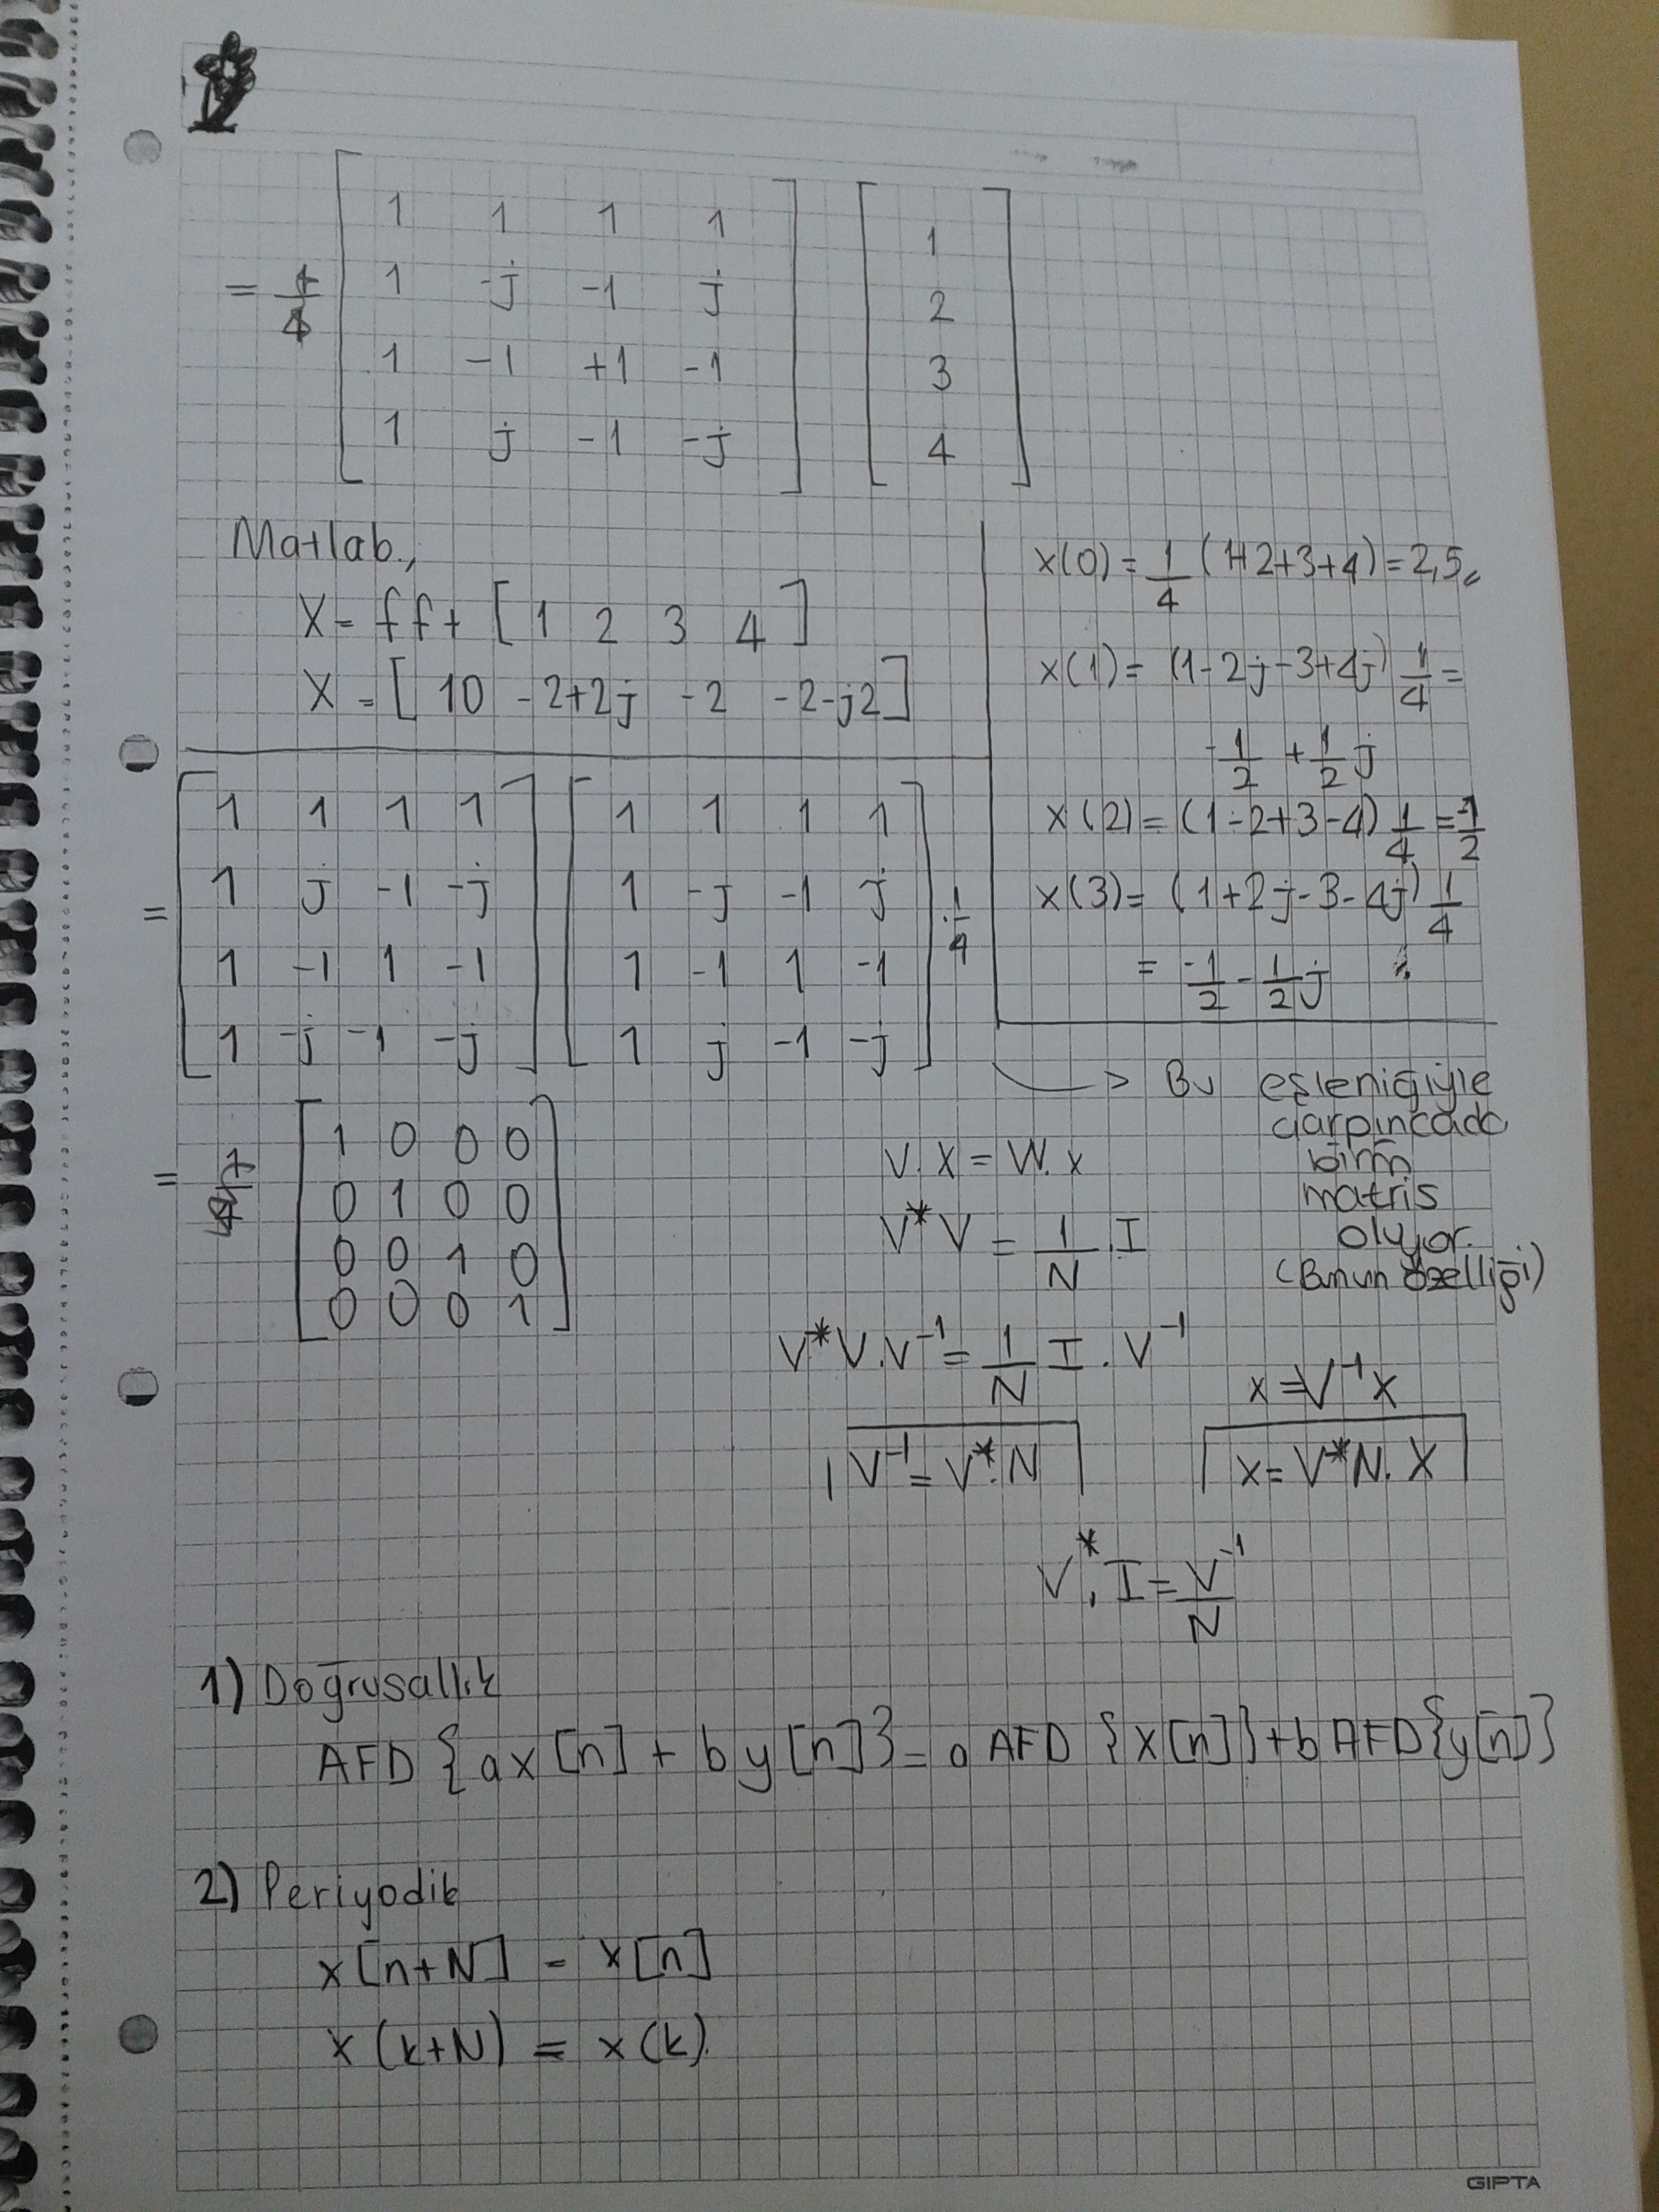 = 1/4 [ 1 1 1 1 ] [ 1 ]
[ 1 -j -1 j ] [ 2 ]
[ 1 -1 +1 -1 ] [ 3 ]
[ 1 j -1 -j ] [ 4 ]
Matlab,
X = fft [ 1 2 3 4 ]
X = [ 10 -2+2j -2 -2-j2 ]
x(0) = 1/4 (1+2+3+4) = 2,5
x(1) = (1-2j-3+4j) 1/4 =
-1/2 + 1/2 j
x(2) = (1-2+3-4) 1/4 = -1/2
x(3) = (1+2j-3-4j) 1/4
= -1/2 - 1/2 j
[ 1 1 1 1 ] [ 1 1 1 1 ]
= [ 1 j -1 -j ] [ 1 -j -1 j ] . 1/4
[ 1 -1 1 -1 ] [ 1 -1 1 -1 ]
[ 1 -j -1 -j ] [ 1 j -1 -j ]
=
[ 1 0 0 0 ]
[ 0 1 0 0 ]
[ 0 0 1 0 ]
[ 0 0 0 1 ]
-> Bu eşleniğiyle
çarpıncada
birim
matris
oluyor.
(Bunun özelliği)
V.X = W.x
V*V = 1/N . I
V*V.V⁻¹ = 1/N I . V⁻¹
V⁻¹ = V*.N
x = V⁻¹X
x = V*N.X
V*.I = V⁻¹/N
1) Doğrusallık
AFD {ax[n] + by[n]} = a AFD {x[n]} + b AFD{y[n]}
2) Periyodik
x[n+N] = x[n]
x(k+N) = x(k).
GIPTA